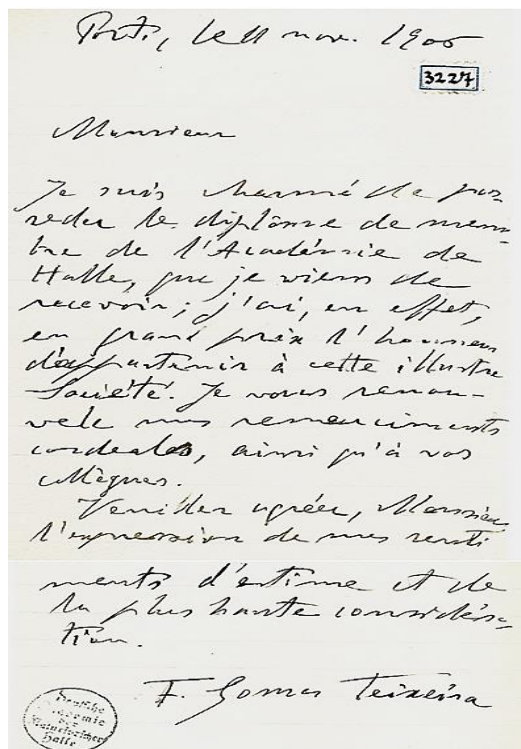 Porto, le 11 nov. 1906
3227
Monsieur
Je suis charmé de pos-
seder le diplôme de mem-
bre de l'Académie de
Halle, que je viens de
recevoir; j'ai, en effet,
en grand prix l'honneur
d'appartenir à cette illustre
Société. Je vous renou-
vele mes remerciments
cordeales, ainsi qu'à vos
collègues.
Veuillez agréer, Monsieur
l'expression de mes senti
ments d'estime et de
la plus haute considéra-
tion.
F. Gomes Teixeira
Deutsche
Akademie
der
Naturforscher
Halle